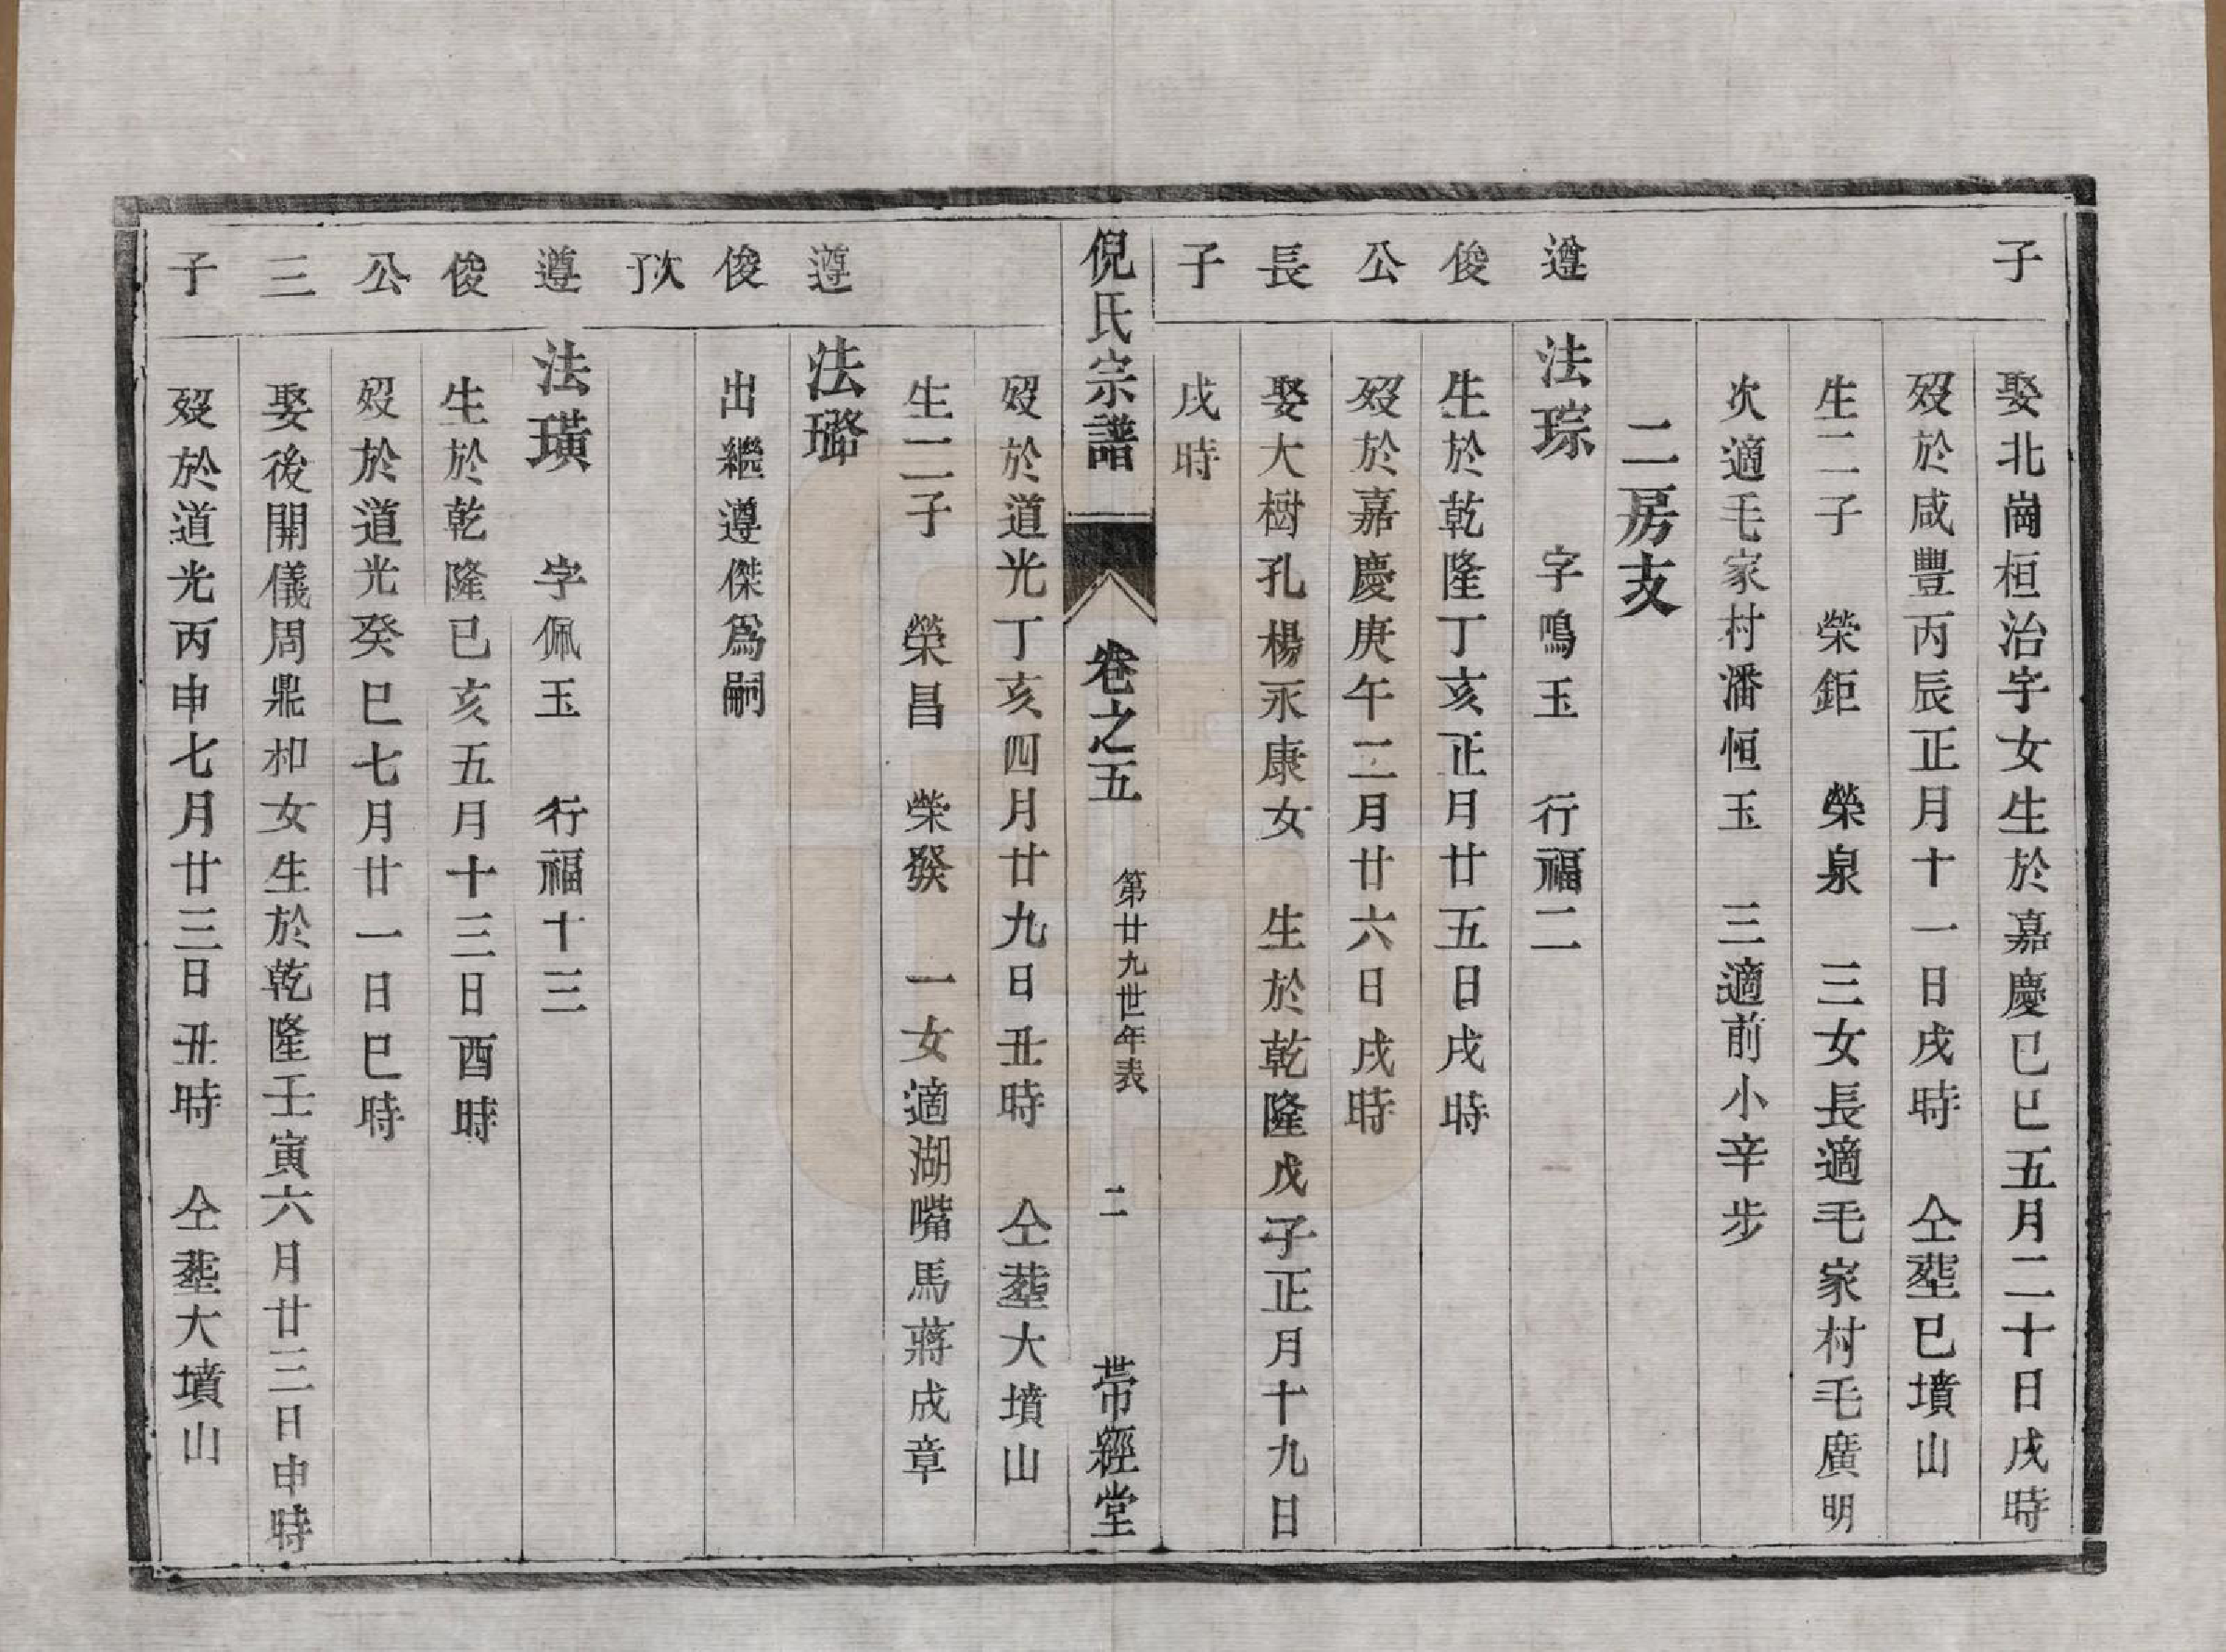 子
娶北崗桓治字女生於嘉慶己巳五月二十日戌時
歿於咸豐丙辰正月十一日戌時　仝塟巳墳山
生二子　榮鉅　榮泉　三女長適毛家村毛廣明
次適毛家村潘恒玉　三適前小辛步
二房支
遵
法琮　字鳴玉　行福二
俊
生於乾隆丁亥正月廿五日戌時
公
歿於嘉慶庚午二月廿六日戌時
長
娶大樹孔楊永康女　生於乾隆戊子正月十九日
子
戌時
倪氏宗譜　卷之五　第廿九世年表　二　帶經堂
歿於道光丁亥四月廿九日丑時　仝塟大墳山
生二子　榮昌　榮發　一女適湖嘴馬蔣成章
遵
法璐
俊
出繼遵傑爲嗣
次子
遵
法璜　字佩玉　行福十三
俊
生於乾隆己亥五月十三日酉時
公
歿於道光癸巳七月廿一日巳時
三
娶後開儀周鼎和女生於乾隆壬寅六月廿三日申時
子
歿於道光丙申七月廿三日丑時　仝塟大墳山